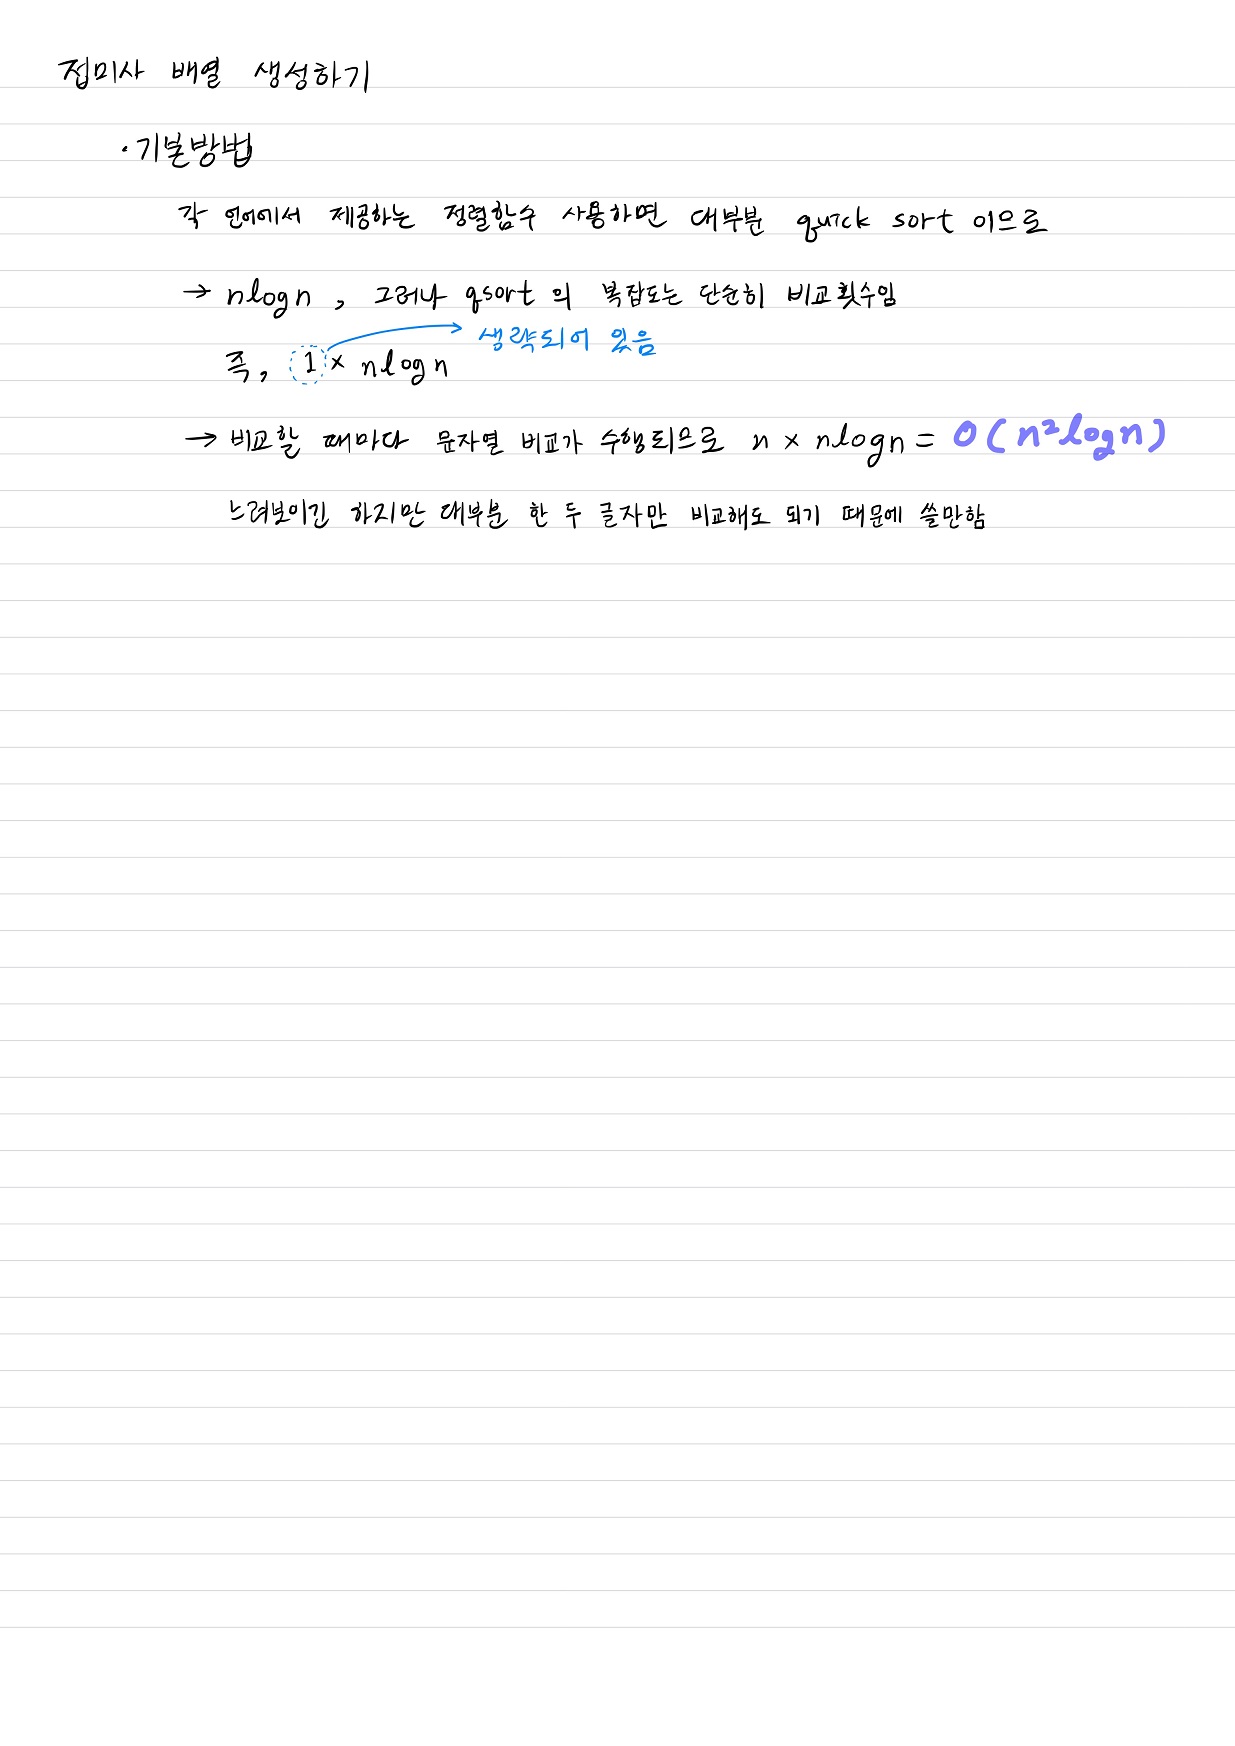 접미사 배열 생성하기
· 기본방법
각 언어에서 제공하는 정렬함수 사용하면 대부분 quick sort 이으로
→ nlogn , 그러나 qsort 의 복잡도는 단순히 비교횟수임
생략되어 있음
즉, 1 × nlogn
→ 비교할 때마다 문자열 비교가 수행되므로 n × nlogn = O(n²logn)
느려보이긴 하지만 대부분 한 두 글자만 비교해도 되기 때문에 쓸만함